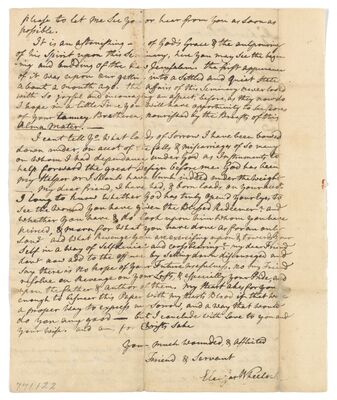 please to let me see you or hear from you as soon as
posible.
It is an astonishing of God's Grace & the outpouring
of his Spirit upon this Seminary, here you may see the begin-
ing and budding of the Jerusalem the first appearance
of it was upon our getting into a settled and Quiet State
about a month ago. The affairs of this Seminary never looked
with so joyful and incouraging an aspect before, as they now do
I hope in a little time you will have opportunity to be
of your Tawney Brethren, nourished by the Breasts of this
Alma Mater. —
I cant tell you what loads of Sorrow I have been bowed
down under, on acct of the falls, & miscarriages of so many
on whom I had dependance under God as Instruments to
help forward the great design before me. God has been
my Helper or I should have sunk indeed under the Weight
My dear Friend, I have had, & born loads on your acct.
I long to know whether God has truly opened your eyes to
See the Wound you have given the blessed Redeemer; and
whether you have & do look upon him whom you have
pierced, & mourn for what you have done as for an only
Son? and what Revenge you are exercising upon & toward your
Self in a way of Self denial and cross bearing? my dear Friend
dont now add to the offence by Setting down discouraged and
Say there is no hope of your future usefulness, no my Friend
resolve on revenge on your Lusts, & especially your Pride, and
upon the father & author of them. My Heart akes for you
enough to besmear this Paper with my Hearts Blood if that were
a proper Way to express my Sorrow, and a way that would
do you any good — but I conclude with Love to you and
your Wife. and am for Christs Sake
Your much wounded & afflicted
Friend & Servant
Eleazar Wheelock
771122